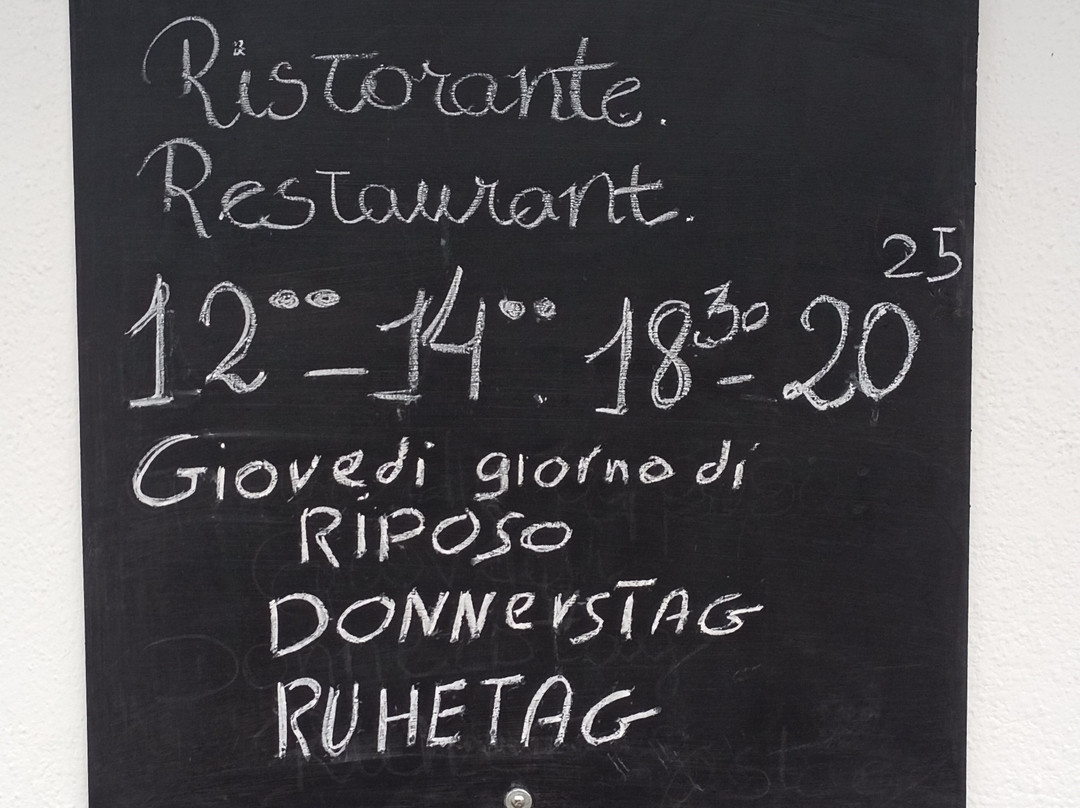 Ristorante.
Restaurant.
12⁰⁰ - 14⁰⁰. 18³⁰ - 20²⁵
Giovedi giorno di
RiPOSO
DONNerSTAG
RUHETAG